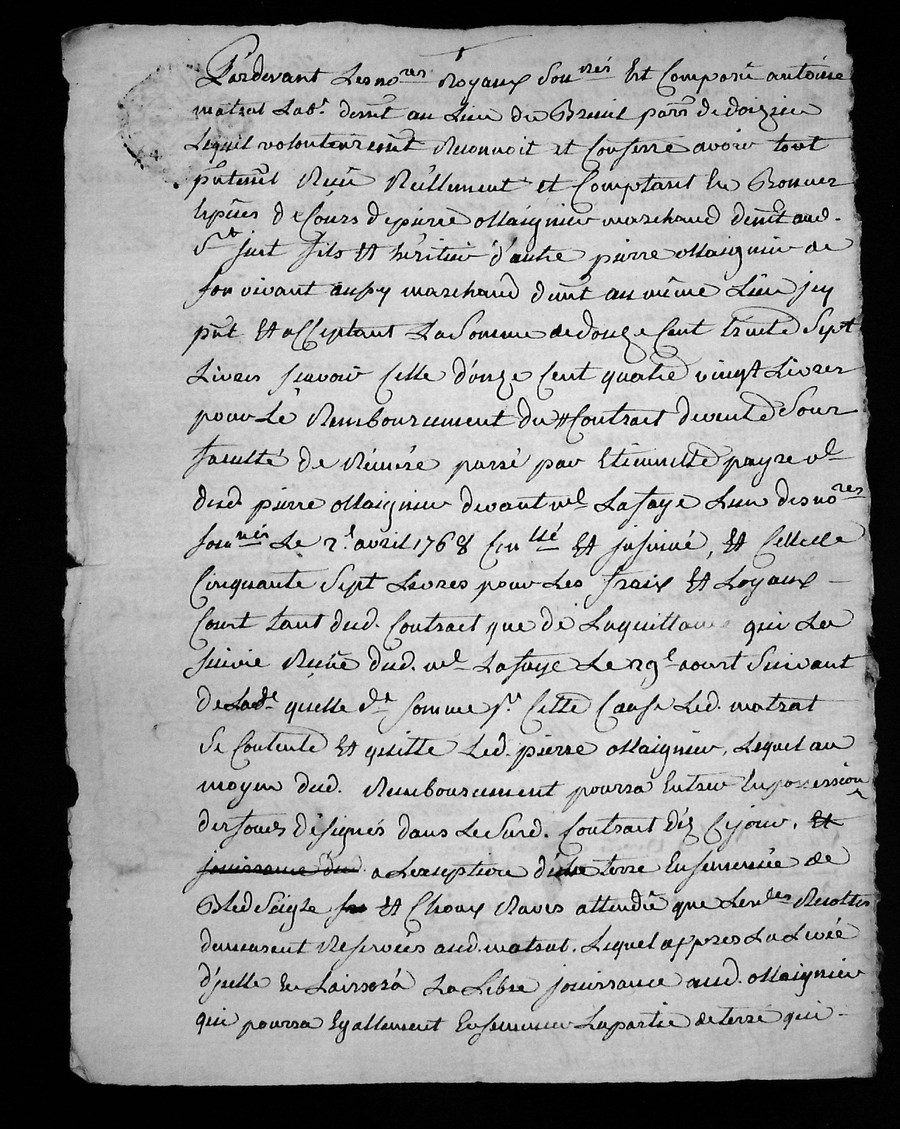 Pardevant Les no.res Royaux Sou.nés Est Comparû antoine
matrat Lab.r demt au Lieu du Breuil parr. de doizieu
Lequel volontairemt Reconnoit et Confesse avoir tout
p̃ntemt Reçû Réellement et Comptant En Bonnes
Espèces de Cours de pierre Maignier marchand demt aud.
fils Et héritier d'autre pierre Maignier de
son vivant aussy marchand demt au même Lieu jcy
p̃nt Et acceptant La Somme de douze Cent trente Sept
Livres sçavoir Celle d'onze Cent quatre vingt Livres
pour Le Remboursement du Contrat de vente Sous
faculté de Réméré passé par Etiennette payre v.e
dud. pierre Maignier devant m.e Lafaye L'un des no.res
sou.nés Le 2.e avril 1768 Con.llé Et jnsinué, Et Celle de
Cinquante Sept Livres pour Les fraix Et Loyaux
Cout tant dud. Contrat que de La quittance qui La
suivie Reçûe dud. m.e Lafaye Le 29.e aoust Suivant
de La quelle d.e somme p.r Cette Cause Led. matrat
Se Contente Et quitte Led. pierre Maignier, Lequel au
moyen dud. Remboursement pourra Entrer En possession
des fonds désignés dans Le Susd. Contrat dèz Cejour, Et
jouissance d'iceux a L'exception d'une terre Ensemencée de
Bled Seigle Et Choux Raves attendû que Les d.es Récoltes
demeurent Reservées aud. matrat. Lequel appres La Levée
d'jcelle En Laissera La Libre jouissance aud. Maignier
qui pourra Egallement Ensemencer La partie de terre qui